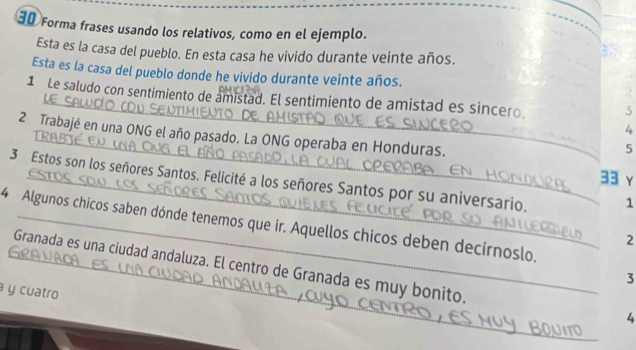 30 Forma frases usando los relativos, como en el ejemplo.
Esta es la casa del pueblo. En esta casa he vivido durante veinte años.
Esta es la casa del pueblo donde he vivido durante veinte años.
1 Le saludo con sentimiento de amistad. El sentimiento de amistad es sincero.
LE SALUDO CON SENTIMIENTO DE AMISTAD QUE ES SINCERO
2 Trabajé en una ONG el año pasado. La ONG operaba en Honduras.
TRABAJÉ EN UNA ONG EL AÑO PASADO, LA CUAL OPERABA EN HONDURAS
3 Estos son los señores Santos. Felicité a los señores Santos por su aniversario.
ESTOS SON LOS SEÑORES SANTOS QUIENES FELICITÉ POR SU
4 Algunos chicos saben dónde tenemos que ir. Aquellos chicos deben decírnoslo.
Granada es una ciudad andaluza. El centro de Granada es muy bonito.
GRANADA ES UNA CIUDAD ANDALUZA, CUYO CENTRO, ES MUY BONITO
y cuatro
3
4
5
33 Y
1
2
3
4